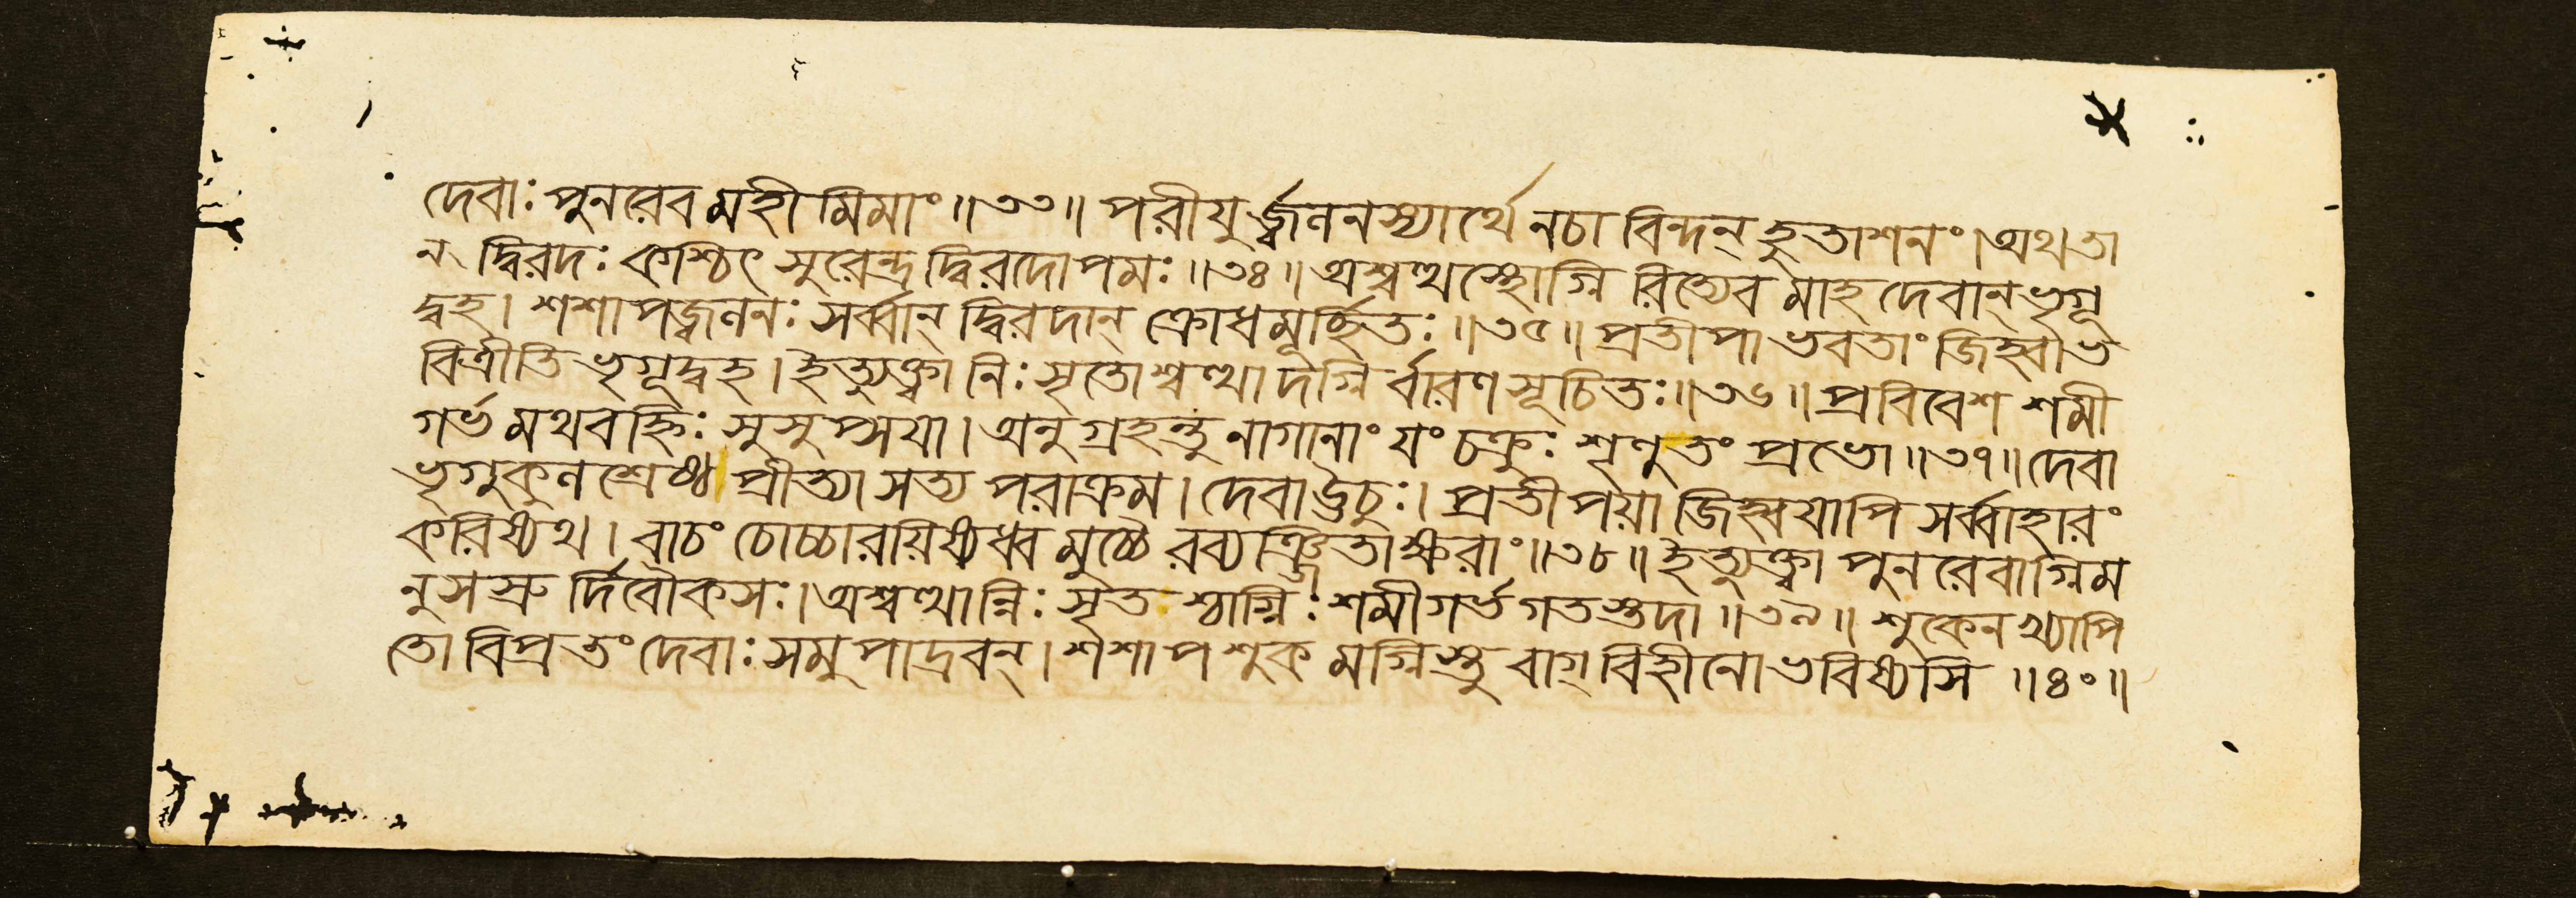 দেবাঃ পুনরেব মহীমিমাং॥৩৩॥ পরীযুর্জ্জ্বলনস্যার্থে নচাবিন্দন্ হুতাশনং।অথ তা
ন্ দ্বিরদঃ কশ্চিৎ সুরেন্দ্রদ্বিরদোপমঃ॥৩৪॥ অশ্বত্থস্থোগ্নিরিত্যেবমাহ দেবান্ ভৃগূ
দ্বহ। শশাপ জ্বলনঃ সর্ব্বান্ দ্বিরদান্ ক্রোধমূর্চ্ছিতঃ॥৩৫॥ প্রতীপা ভবতাং জিহ্বা ভ
বিত্রীতি ভৃগূদ্বহ। ইত্যুক্ত্বা নিঃসৃতোশ্বত্থাদগ্নির্ব্বারণসূচিতঃ॥৩৬॥ প্রবিবেশ শমী
গর্ভমথ বহ্নিঃ সুসুপ্সয়া। অনুগ্রহন্তু নাগানাং যং চক্রুঃ শৃণু তং প্রভো॥৩৭॥ দেবা
ভৃগুকুলশ্রেষ্ঠ। প্রীত্যা সত্যপরাক্রম। দেবা ঊচুঃ। প্রতীপয়া জিহ্বয়াপি সর্ব্বাহারং
করিষ্যথ। বাচং চোচ্চারয়িষ্যধ্বমুচ্চৈরব্যঞ্জিতাক্ষরাং॥৩৮॥ ইত্যুক্ত্বা পুনরেবাগ্নিম
নুসস্রুর্দিবৌকসঃ। অশ্বত্থান্নিঃসৃতশ্চাগ্নিঃ শমীগর্ভগতস্তদা॥৩৯॥ শুকেন খ্যাপি
তো বিপ্র তং দেবাঃ সমুপাদ্রবন্। শশাপ শুকমগ্নিস্তু বাগ্বিহীনো ভবিষ্যসি॥৪০॥